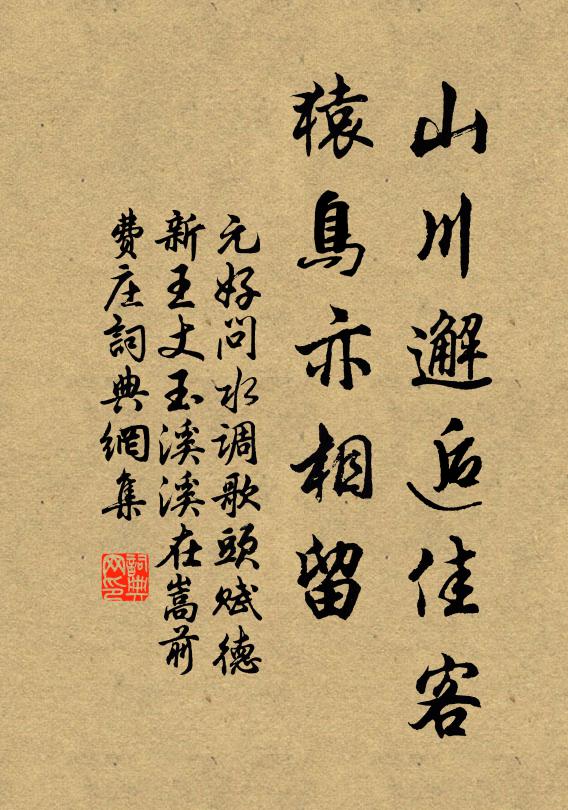 山川邂逅佳客
猿鳥亦相留
元好问水调歌頭赋德
新王丈玉溪溪在嵩前
費庄詞典網集
詞典
网印